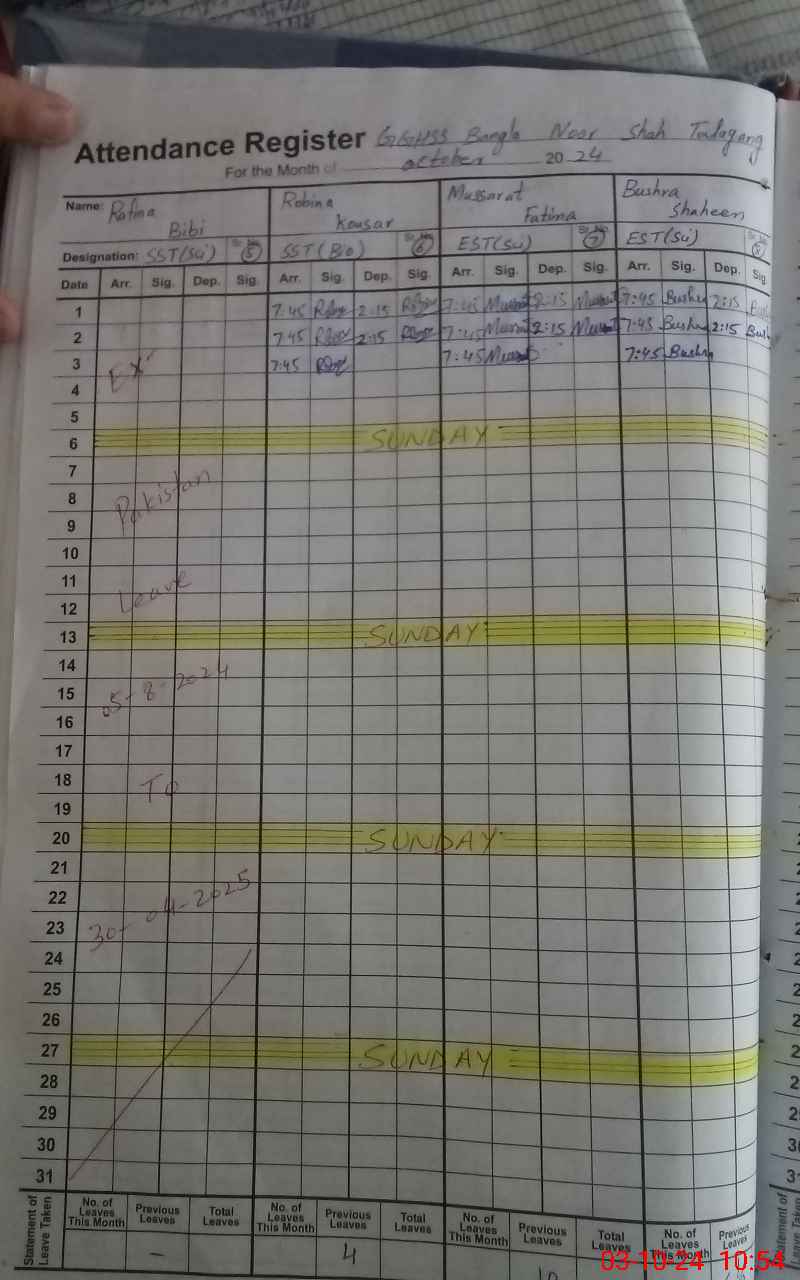 Attendance Register GGHSS Bangla Noor Shah Talagang
For the Month of October 2024
Name: Rafina Bibi Robina Kousar Mussarat Fatima Bushra Shaheen
Designation: SST(Sci) Sr. No. 5 SST(Bio) Sr. No. 6 EST(Sci) Sr. No. 7 EST(Sci) Sr. No. 8
Date Arr. Sig. Dep. Sig. Arr. Sig. Dep. Sig. Arr. Sig. Dep. Sig. Arr. Sig. Dep. Sig.
1 7:45 2:15 7:45 2:15 7:45 Bushra 2:15
2 7:45 2:15 7:45 2:15 7:45 Bushra 2:15
3 Ex 7:45 7:45 7:45 Bushra
4
5
6 SUNDAY
7
8 Pakistan
9
10
11
12 Leave
13 SUNDAY
14
15 05-8-2024
16
17
18 To
19
20 SUNDAY
21
22
23 30-04-2025
24
25
26
27 SUNDAY
28
29
30
31
Statement of Leave Taken No. of Leaves This Month Previous Leaves Total Leaves No. of Leaves This Month Previous Leaves Total Leaves No. of Leaves This Month Previous Leaves Total Leaves No. of Leaves This Month Previous Leaves
– 4 10
03-10-24 10:54